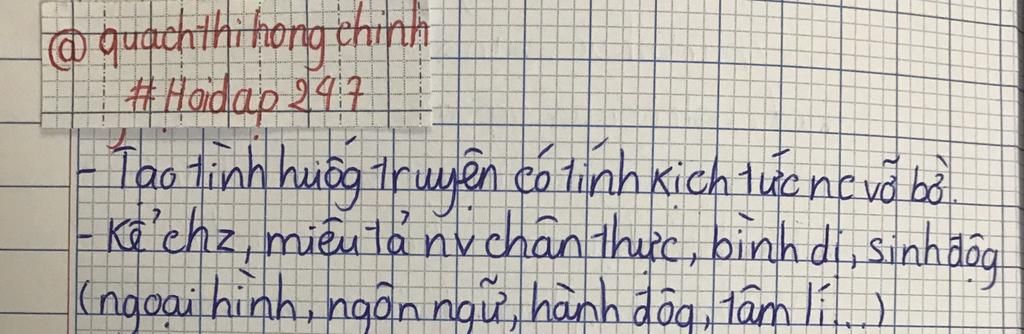 @ quachthihongchinh
# Hoidap247
- Tạo tình huốg truyện có tính kịch tức nc vỡ bờ.
- Kể chz, miêu tả nv chân thực, bình dị, sinh độg
(ngoại hình, ngôn ngữ, hành độg, tâm lí...)